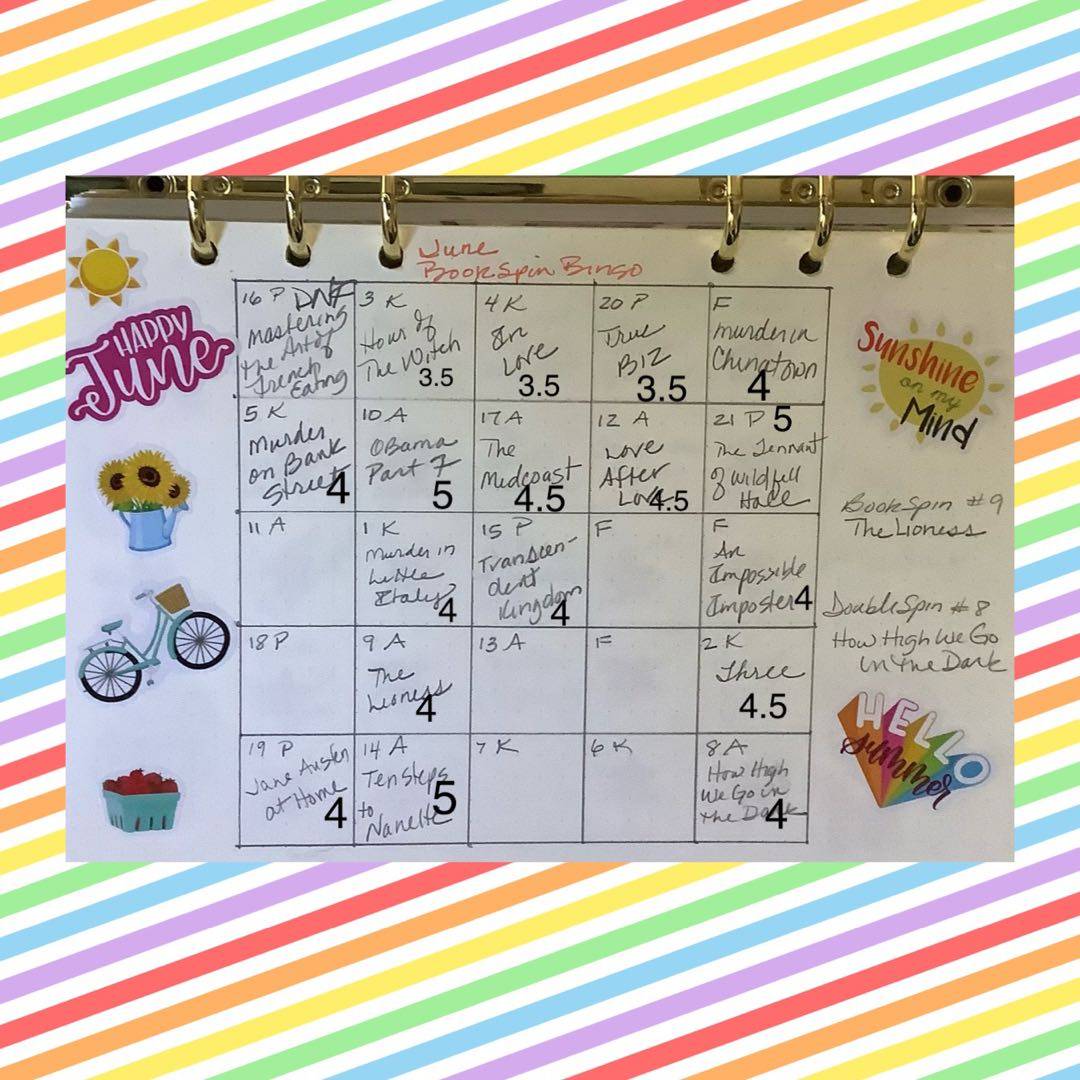 June
BookSpin Bingo
HAPPY
June
16 P DNF
Mastering
the Art of
French
Eating
3 K
Hour of
The Witch
3.5
4 K
In
Love
3.5
20 P
True
Biz
3.5
F
Murder in
Chinatown
4
Sunshine
on my
Mind
5 K
Murder
on Bank
Street
4
10 A
Obama
Part 7
5
17 A
The
Midcoast
4.5
12 A
Love
After
Love
4.5
21 P 5
The Tennant
of Wildfell
Hall
BookSpin #9
The Lioness
11 A
1 K
Murder in
Little
Italy
4
15 P
Transcen-
dent
Kingdom
4
F
F
An
Impossible
Imposter
4
DoubleSpin #8
How High We Go
in the Dark
18 P
9 A
The
Lioness
4
13 A
F
2 K
Three
4.5
HELLO
summer
19 P
Jane Austen
at Home
4
14 A
Ten Steps
to
Nanette
5
7 K
6 K
8 A
How High
We Go in
the Dark
4